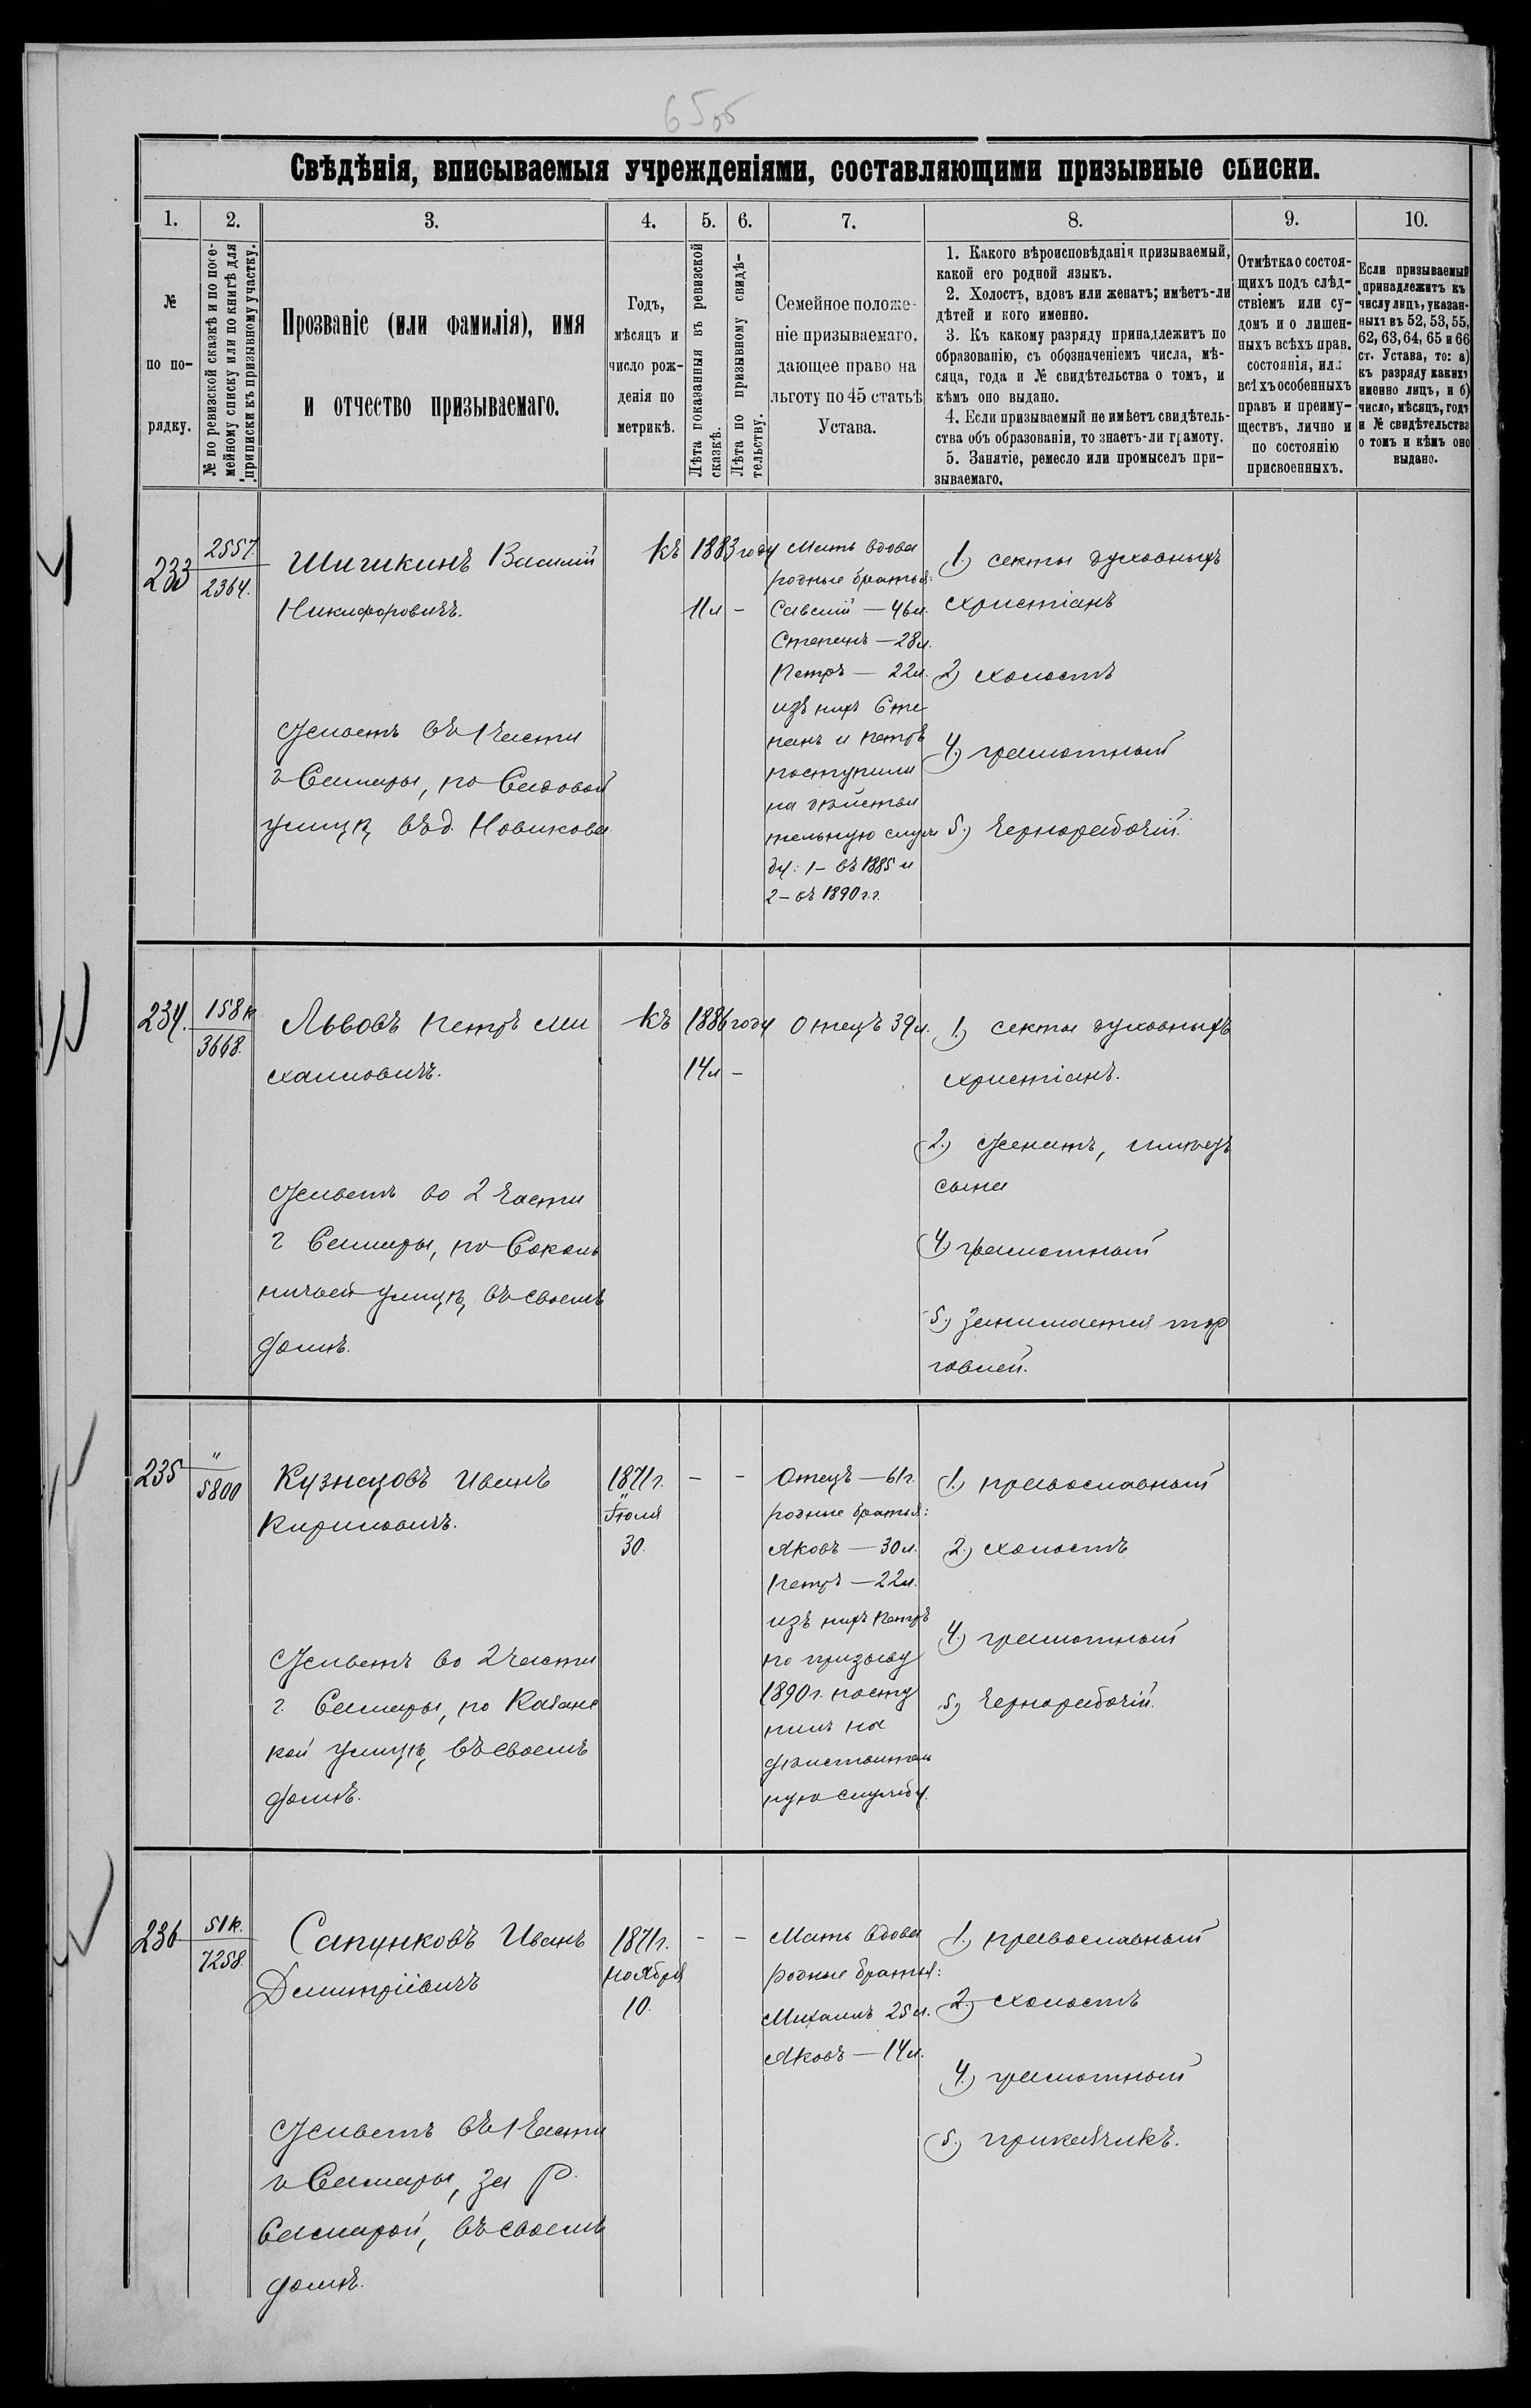 65об
Свѣдѣнія, вписываемыя учрежденіями, составляющими призывные списки.
1.
2.
3.
4.
5.
6.
7.
8.
9.
10.
№
по по-
рядку.
№ по ревизской сказкѣ и по посе-
мейному списку или по книгѣ для
приписки къ призывному участку.
Прозваніе (или фамилія), имя
и отчество призываемаго.
Годъ,
мѣсяцъ и
число рож-
денія по
метрикѣ.
Лѣта показанныя въ ревизской
сказкѣ.
Лѣта по призывному свидѣ-
тельству.
Семейное положе-
ніе призываемаго,
дающее право на
льготу по 45 статьѣ
Устава.
1. Какого вѣроисповѣданія призываемый,
какой его родной языкъ.
2. Холостъ, вдовъ или женатъ; имѣетъ-ли
дѣтей и кого именно.
3. Къ какому разряду принадлежитъ по
образованію, съ обозначеніемъ числа, мѣ-
сяца, года и № свидѣтельства о томъ, и
кѣмъ оно выдано.
4. Если призываемый не имѣетъ свидѣтель-
ства объ образованіи, то знаетъ-ли грамоту.
5. Занятіе, ремесло или промыселъ при-
зываемаго.
Отмѣтка о состоя-
щихъ подъ слѣд-
ствіемъ или су-
домъ и о лишен-
ныхъ всѣхъ прав.
состоянія, или
всѣхъ особенныхъ
правъ и преиму-
ществъ, лично и
по состоянію
присвоенныхъ.
Если призываемый
принадлежитъ къ
числу лицъ, указан-
ныхъ въ 52, 53, 55,
62, 63, 64, 65 и 66
ст. Устава, то: а)
къ разряду какихъ
именно лицъ, и б)
число, мѣсяцъ, годъ
и № свидѣтельства
о томъ и кѣмъ оно
выдано.
233
2557.
2364.
Шишкинъ Василій
Никифоровичъ.
Живетъ въ 1 части
г Самары, по Садовой
улицѣ, въ д. Новикова
къ 1883 году
11 л –
Мать вдова
родные братья:
Савелій — 46 л.
Степанъ — 28 л.
Петръ — 22 л.
изъ нихъ Сте
панъ и Петръ
поступили
на дѣйстви
тельную служ
бу: 1 – въ 1885 и
2 – въ 1890 г.г.
1.) секты духовныхъ
христіанъ
2) холостъ
4.) грамотный
5.) Чернорабочій.
234.
158 к
3668.
Львовъ Петръ Ми
хаиловичъ.
Живетъ во 2 части
г Самары, по Соколь
ничьей улицѣ, въ своемъ
домѣ.
къ 1886 году
14 л –
Отецъ 39 л.
1.) секты духовныхъ
христіанъ.
2.) Женатъ, имѣетъ
сына
4) грамотный
5.) Занимается тор
говлей.
235
"
5800
Кузнецовъ Иванъ
Кириловичъ.
Живетъ во 2 части
г. Самары, по Казанс
кой улицѣ, въ своемъ
домѣ.
1871 г.
Іюля
30.
–
–
Отецъ — 61 г.
родные братья:
Яковъ — 30 л.
Петръ — 22 л.
изъ нихъ Петръ
по призыву
1890 г. посту
пилъ на
дѣйствитель
ную службу.
1.) православный
2.) холостъ
4.) грамотный
5.) Чернорабочій.
236
51 к.
7258.
Сапунковъ Иванъ
Димитріевичъ
Живетъ въ 1 части
г Самары, за р.
Самарой, въ своемъ
домѣ.
1871 г.
ноября
10.
–
–
Мать вдова
родные братья:
Михаилъ 25 л.
Яковъ — 14 л.
1.) православный
2.) холостъ
4.) грамотный
5.) прикащикъ.